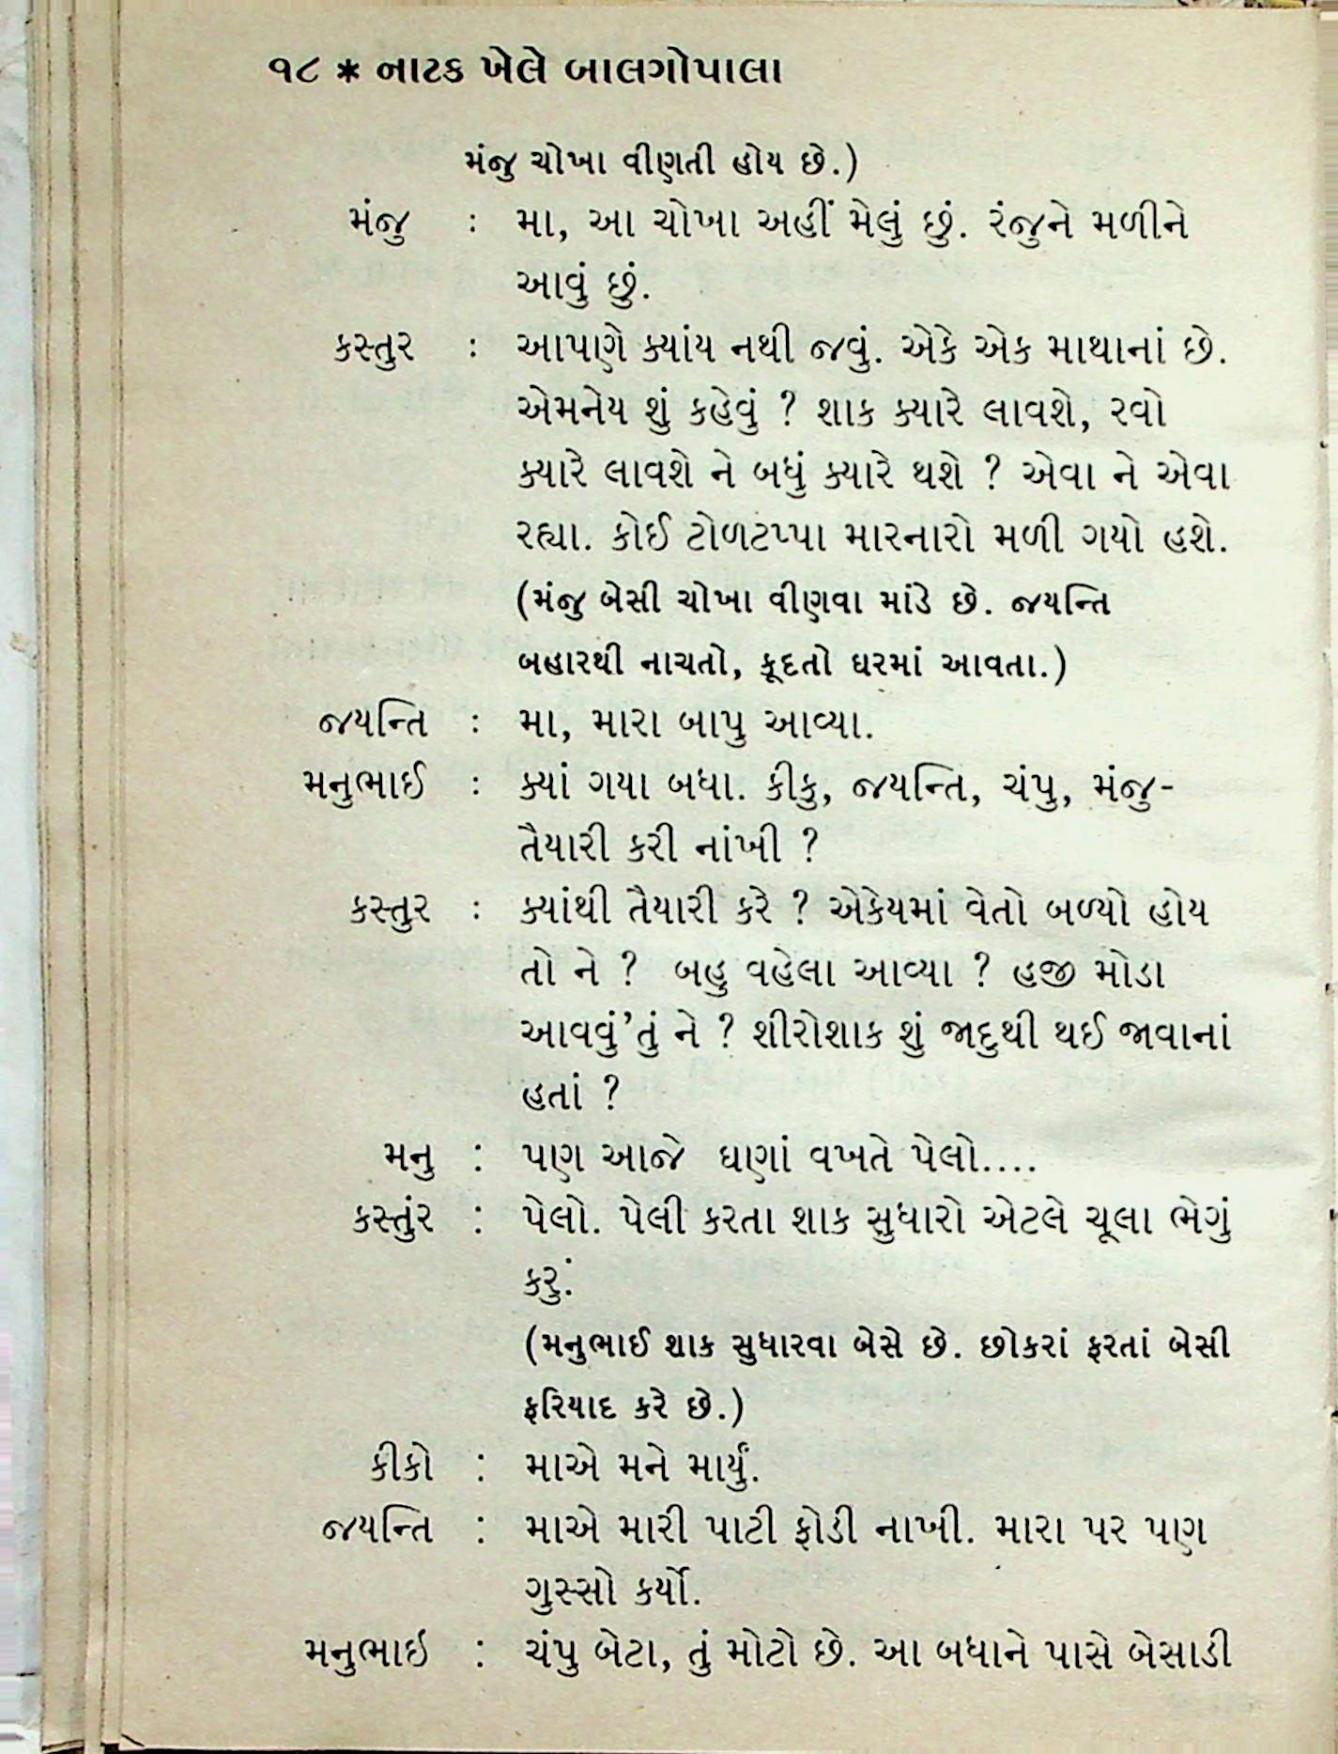 ૧૮ * નાટક ખેલે બાલગોપાલા
મંજુ ચોખા વીણતી હોય છે.)
મંજુ : મા, આ ચોખા અહીં મેલું છું. રંજુને મળીને
આવું છું.
કસ્તુર : આપણે ક્યાંય નથી જવું. એકે એક માથાનાં છે.
એમનેય શું કહેવું ? શાક ક્યારે લાવશે, રવો
ક્યારે લાવશે ને બધું ક્યારે થશે ? એવા ને એવા
રહ્યા. કોઈ ટોળટપ્પા મારનારો મળી ગયો હશે.
(મંજુ બેસી ચોખા વીણવા માંડે છે. જયન્તિ
બહારથી નાચતો, કૂદતો ઘરમાં આવતા.)
જયન્તિ : મા, મારા બાપુ આવ્યા.
મનુભાઈ : ક્યાં ગયા બધા. કીકુ, જયન્તિ, ચંપુ, મંજુ-
તૈયારી કરી નાંખી ?
કસ્તુર : ક્યાંથી તૈયારી કરે ? એકેયમાં વેતો બળ્યો હોય
તો ને ? બહુ વહેલા આવ્યા ? હજી મોડા
આવવું’તું ને ? શીરોશાક શું જાદુથી થઈ જાવાનાં
હતાં ?
મનુ : પણ આજે ઘણાં વખતે પેલો....
કસ્તુંર : પેલો. પેલી કરતા શાક સુધારો એટલે ચૂલા ભેગું
કરું.
(મનુભાઈ શાક સુધારવા બેસે છે. છોકરાં ફરતાં બેસી
ફરિયાદ કરે છે.)
કીકો : માએ મને માર્યું.
જયન્તિ : માએ મારી પાટી ફોડી નાખી. મારા પર પણ
ગુસ્સો કર્યો.
મનુભાઇ : ચંપુ બેટા, તું મોટો છે. આ બધાને પાસે બેસાડી